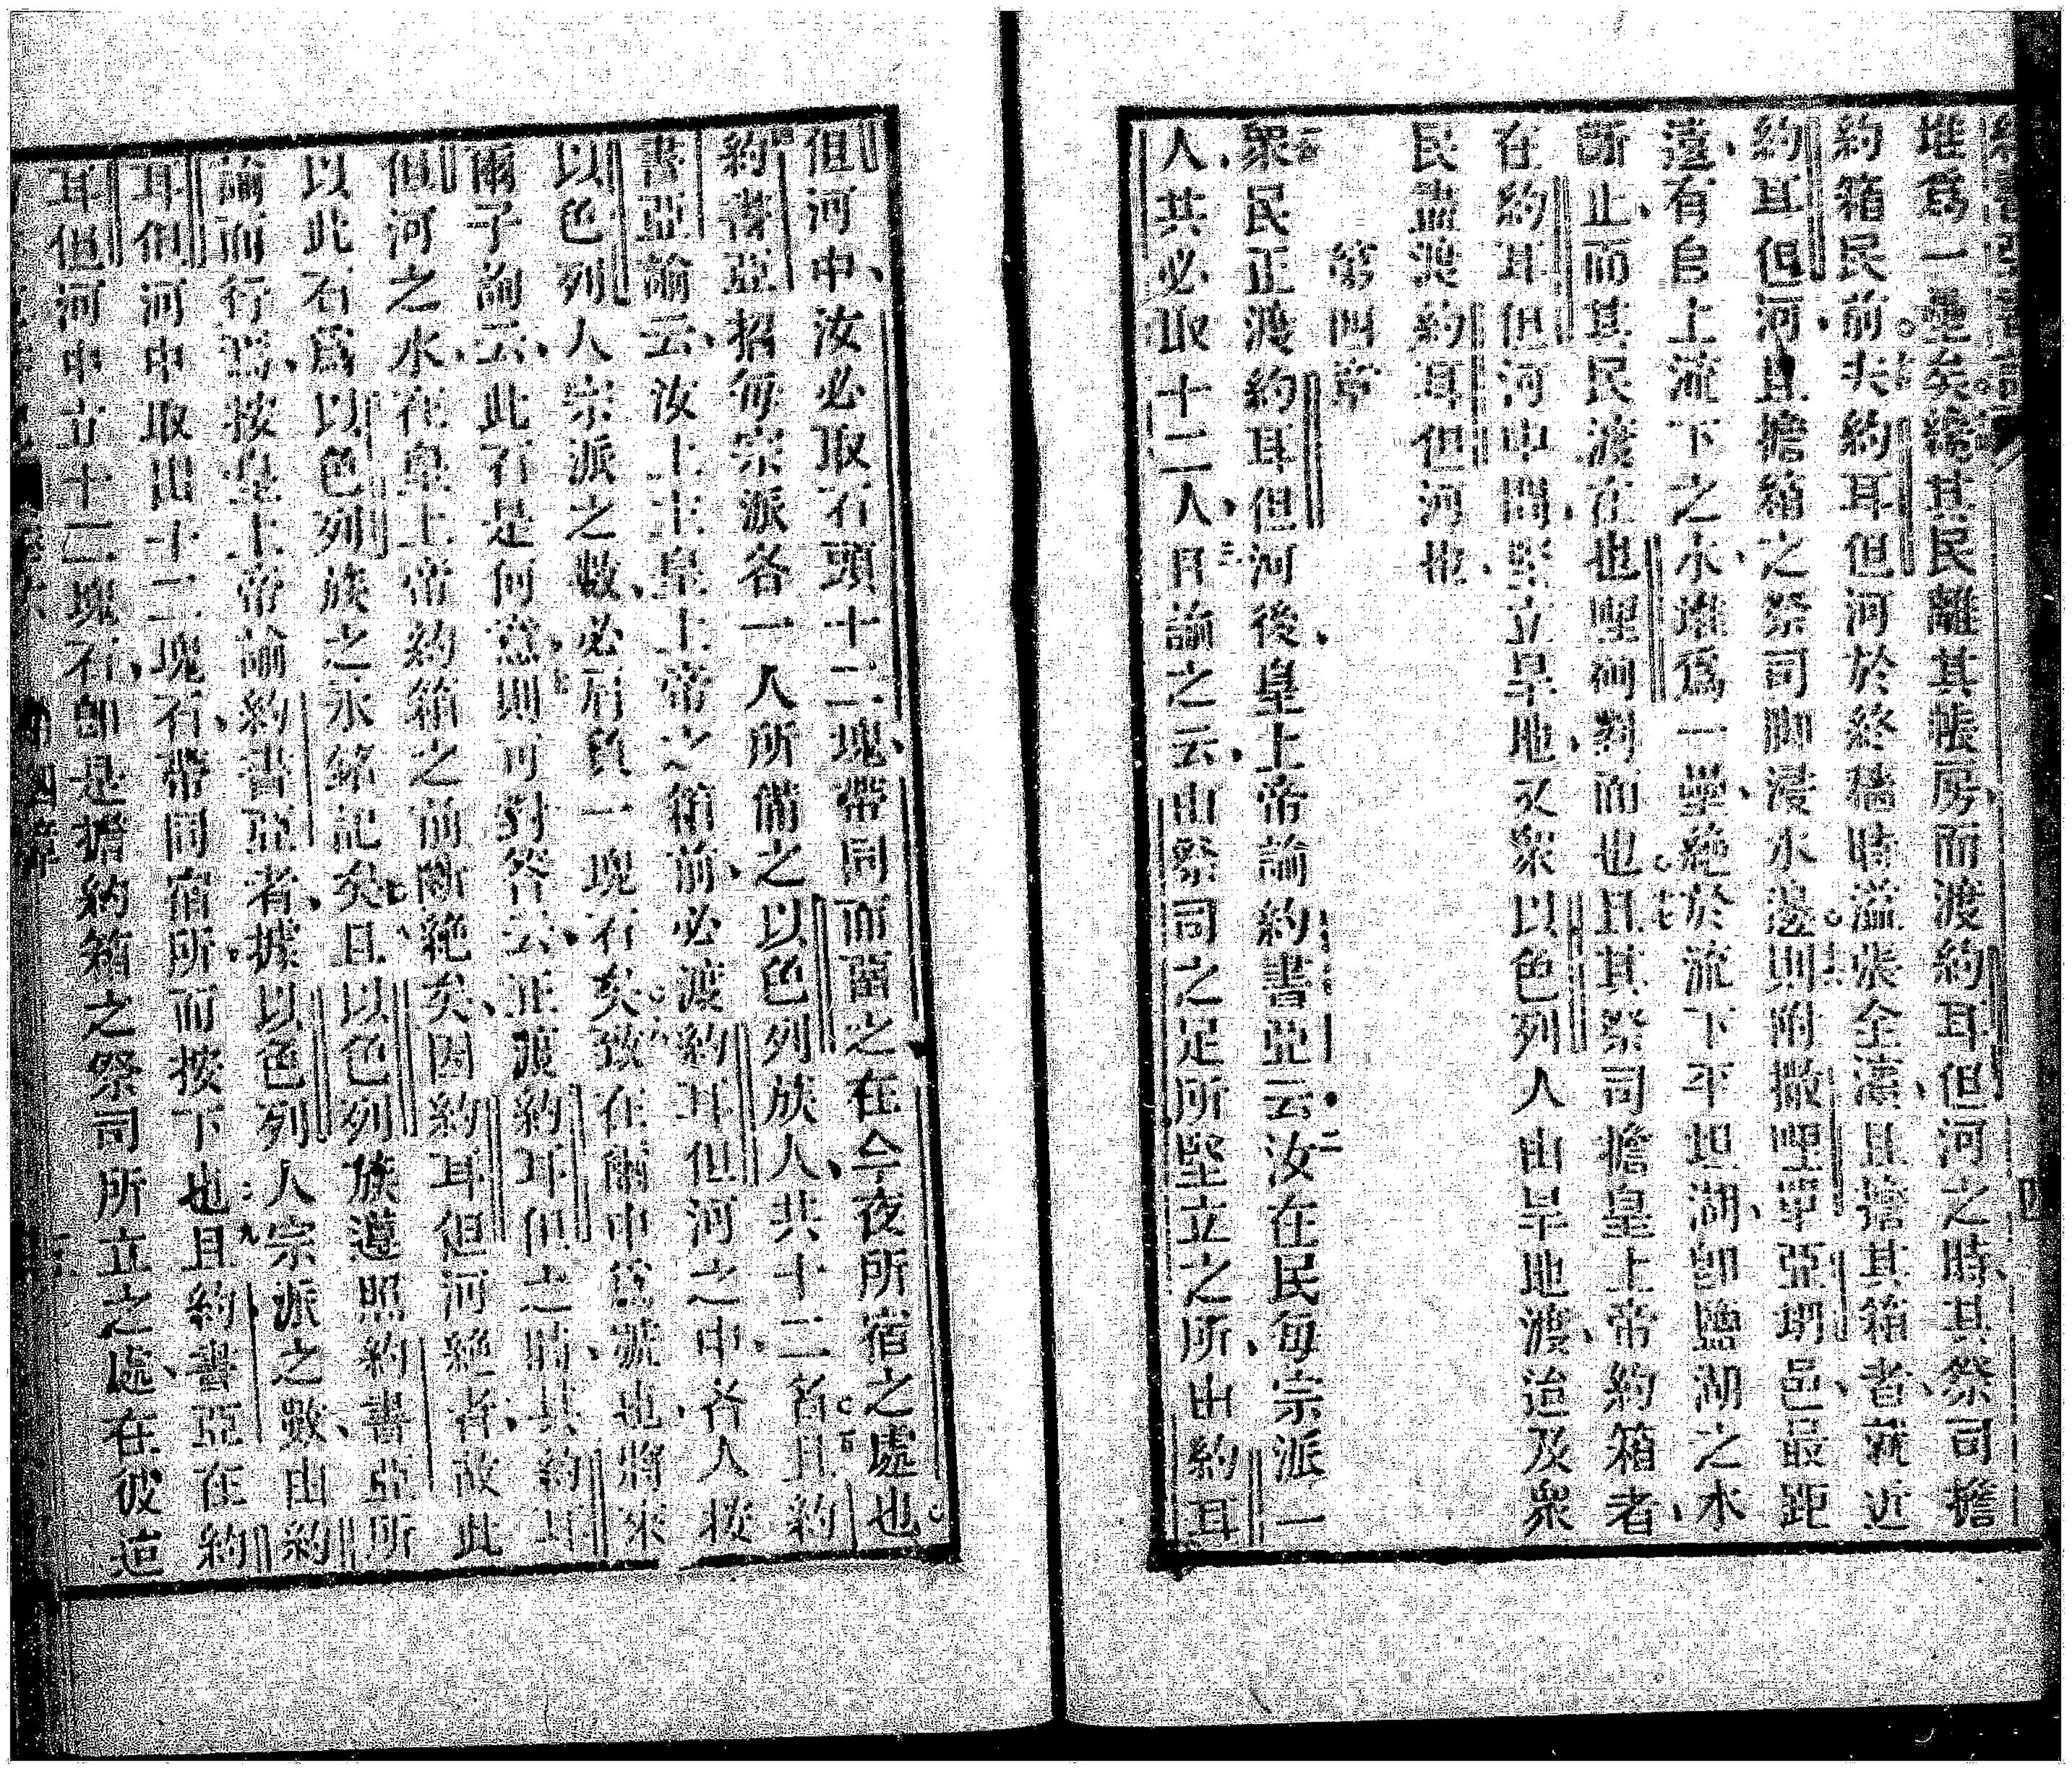 堆爲一壘矣㐮其民離其帳房而渡約耳但河之時其祭司擔
約箱民前夫約耳但河於終穡時溢漲全濱且擔其箱者就近
約耳但河且擔箱之祭司脚浸水邊則附撒哩單亞坍邑最距
遠有自上流下之水堆爲一壘絶於流下平坦湖卽鹽湖之水
斷止而其民渡在也哩柯對而也且其祭司擔皇上帝約箱者
在約耳但河中間堅立旱地又衆以色列人由旱地渡迨及衆
民盡渡約耳但河也
第四章
一衆民正渡約耳但河後皇上帝諭約書亞云二汝在民每宗派一
人共必取十二人三日諭之云由祭司之足所堅立之所由約耳
但河中汝必取石頭十二塊帶同而留之在今夜所宿之處也
四約書亞招每宗派各一人所備之以色列族人共十二者五且約
書亞諭云汝上主皇上帝之箱前必渡約耳但河之中各人按
以色列人宗派之數必肩負一塊石矣六致在爾中爲號也將來
爾子詢云此石是何意七則可對答云正渡約耳但之時其約耳
但河之水在皇上帝約箱之前斷絶矣因約耳但河絶者故此
以此石爲以色列族之永銘記矣八且以色列族遵照約書亞所
諭而行焉按皇上帝諭約書亞者據以色列人宗派之數由約
耳但河中取出十二塊石帶同宿所而按下也九且約書亞在約
耳但河中立十二塊石卽是擔約箱之祭司所立之處在彼迨